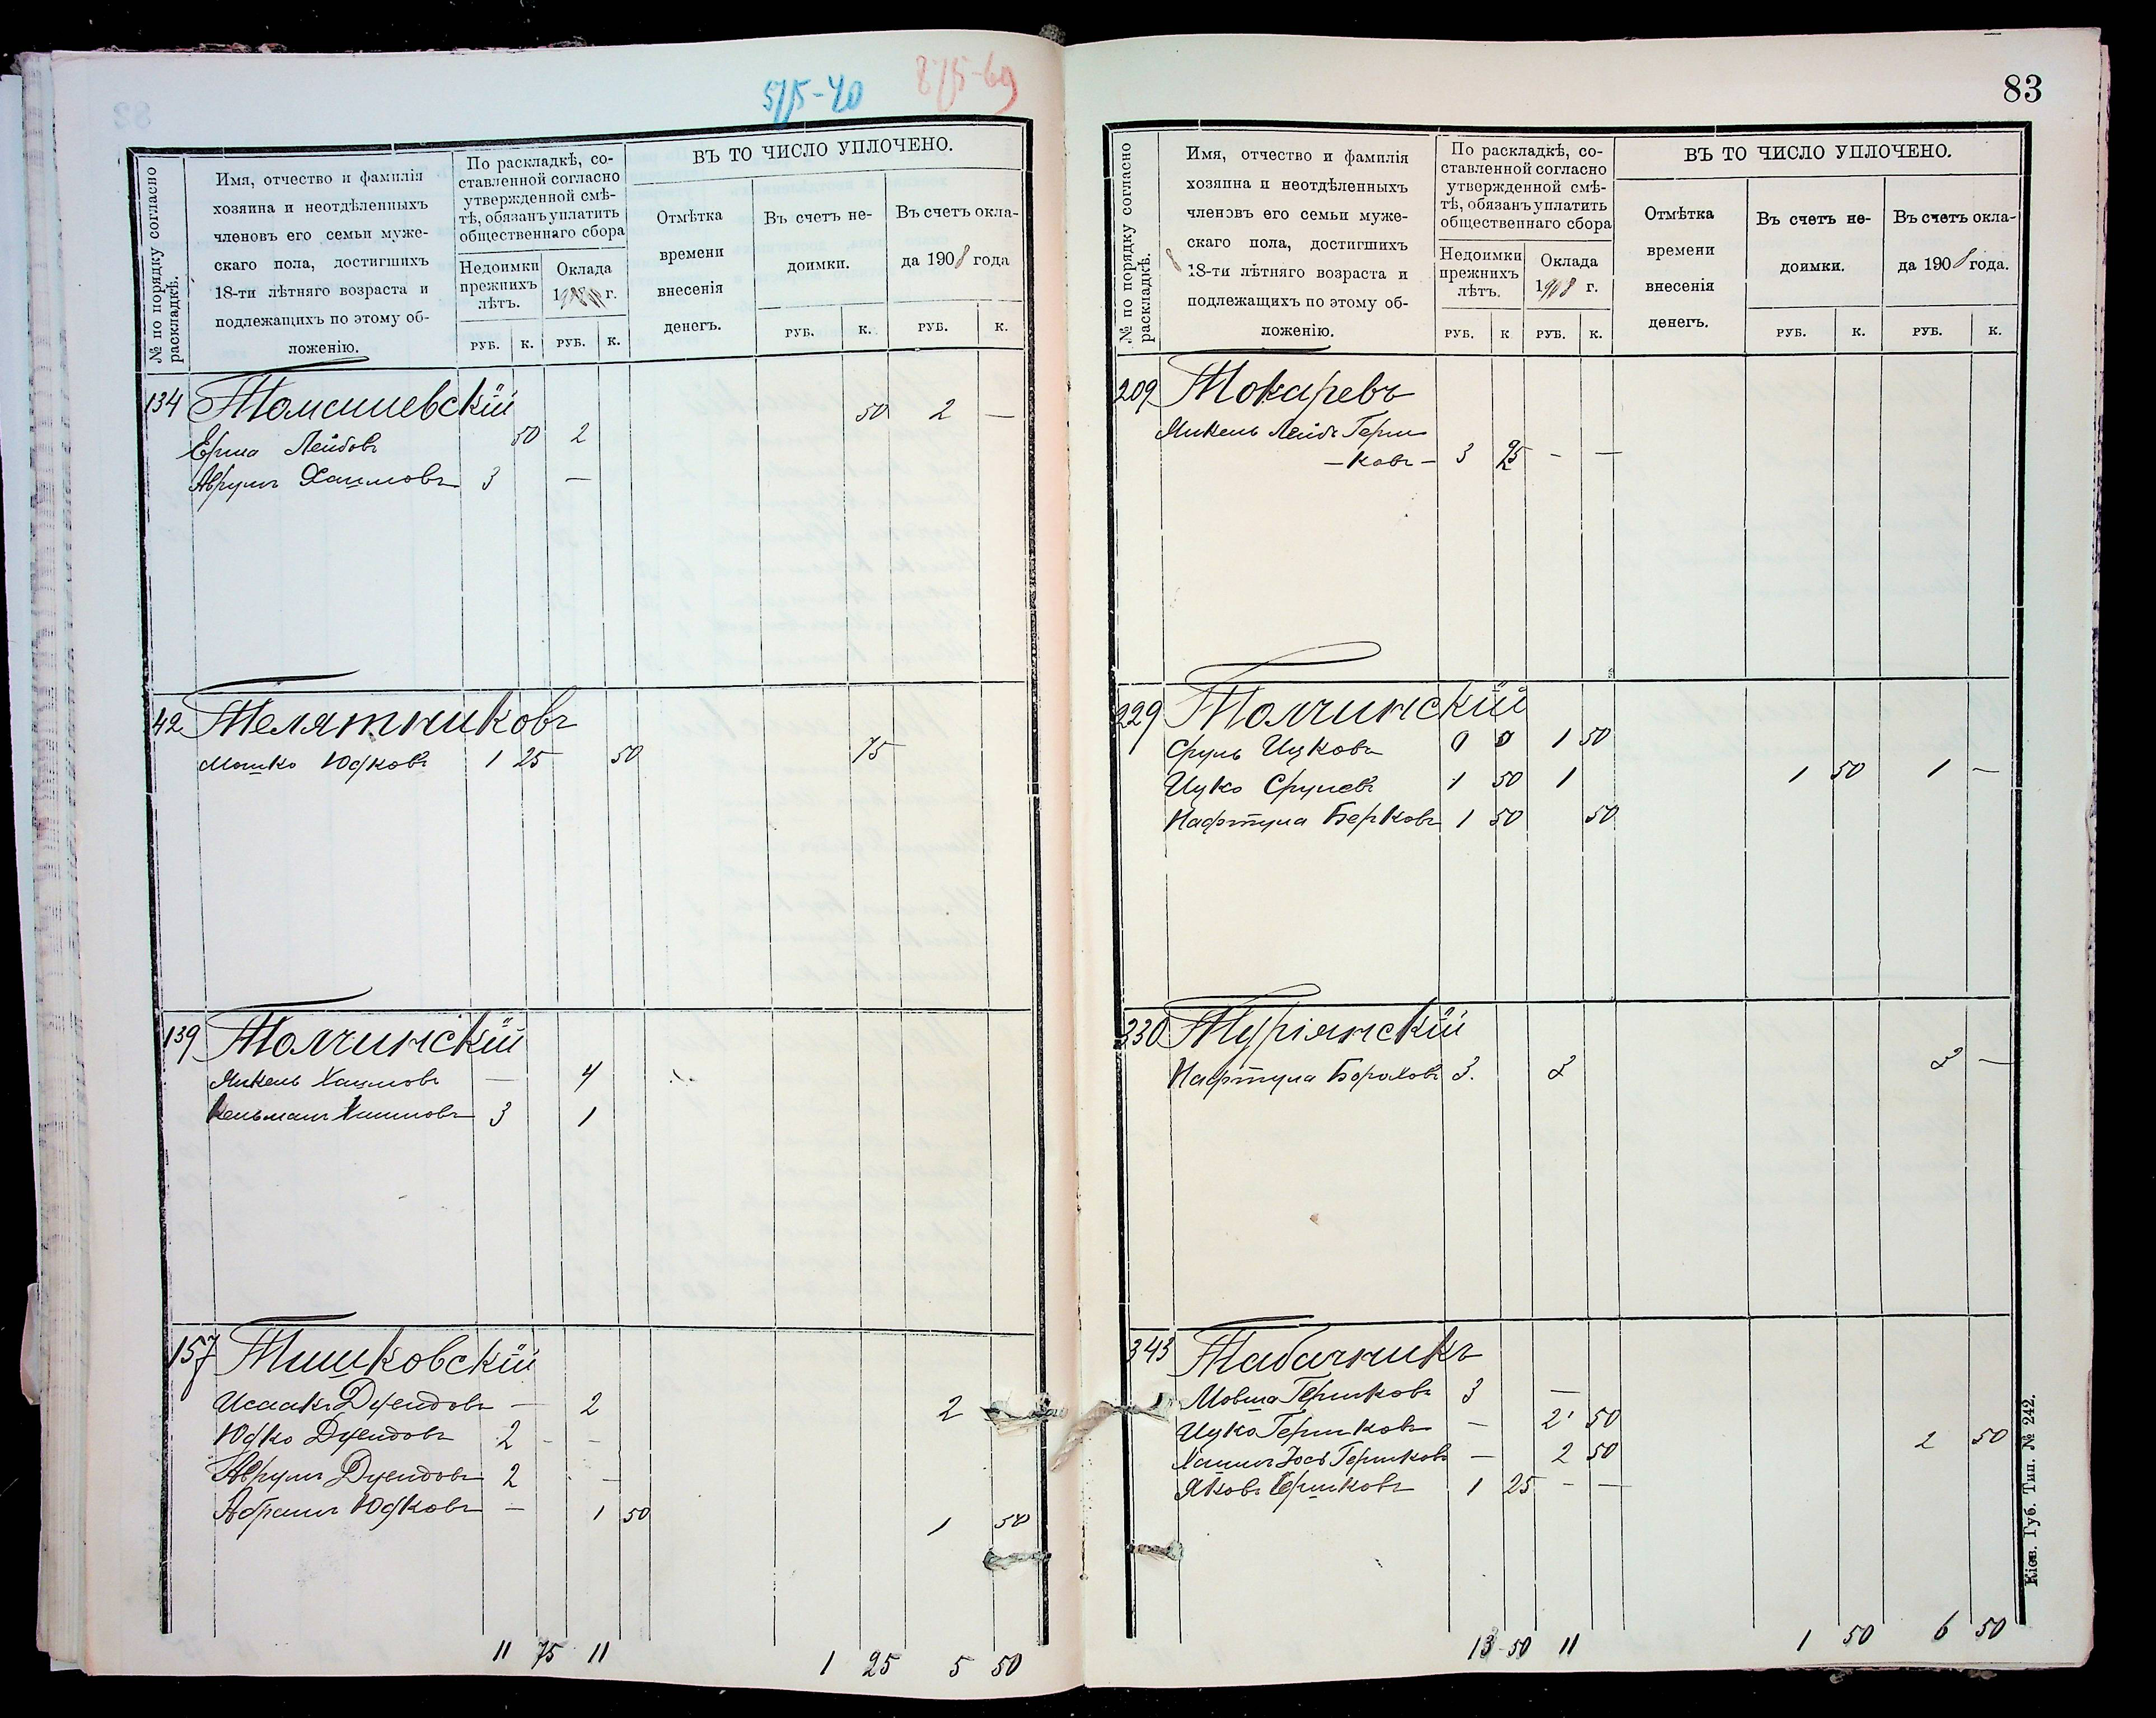 575-40 875-69
№ по порядку согласно раскладкѣ.
Имя, отчество и фамилія
хозяина и неотдѣленныхъ
членовъ его семьи муже-
скаго пола, достигшихъ
18-ти лѣтняго возраста и
подлежащихъ по этому об-
ложенію.
По раскладкѣ, со-
ставленной согласно
утвержденной смѣ-
тѣ, обязанъ уплатить
общественнаго сбора
Недоимки
прежнихъ
лѣтъ.
Оклада
г.
РУБ. К. РУБ. К.
ВЪ ТО ЧИСЛО УПЛОЧЕНО.
Отмѣтка
времени
внесенія
денегъ.
Въ счетъ не-
доимки.
Въ счетъ окла-
да 1908 года
РУБ. К. РУБ. К.
134 Томашевскій
50 2 —
Ерша Лейбовъ 50 2
Аврумъ Хаимовъ 3 —
42 Телятниковъ
Мошко Юдковъ 1 25 50 75
139 Толчинскій
Янкель Хаимовъ — 4
Кельманъ Хаимовъ 3 1
157 Тишковскій
Исаакъ Дуендовъ — 2 2 —
Юдко Дуендовъ 2 - -
Аврумъ Дуендовъ 2 —
Абрамъ Юдковъ — 1 50 1 50
11 75 11 1 25 5 50
83
№ по порядку согласно раскладкѣ.
Имя, отчество и фамилія
хозяина и неотдѣленныхъ
членовъ его семьи муже-
скаго пола, достигшихъ
18-ти лѣтняго возраста и
подлежащихъ по этому об-
ложенію.
По раскладкѣ, со-
ставленной согласно
утвержденной смѣ-
тѣ, обязанъ уплатить
общественнаго сбора
Недоимки
прежнихъ
лѣтъ.
Оклада
1908 г.
РУБ. К РУБ. К.
ВЪ ТО ЧИСЛО УПЛОЧЕНО.
Отмѣтка
времени
внесенія
денегъ.
Въ счетъ не-
доимки.
Въ счетъ окла-
да 1908 года.
РУБ. К. РУБ. К.
209 Токаревъ
Янкель Лейбъ Герш
—ковъ— 3 25 - —
229 Толчинскій
Сруль Ицковъ 0 0 1 50
Ицко Срулевъ 1 50 1 1 50 1 —
Нафтула Берковъ 1 50 50
330 Туріянскій
Нафтула Бороховъ 3. 3 3 —
343 Табачникъ
Мовша Гершковъ 3 —
Ицко Гершковъ — 2 50
Хаимъ Іосъ Гершковъ — 2 50 2 50
Яковъ Гершковъ 1 25 - —
13 50 11 1 50 6 50
Кіев. Губ. Тип. № 242.